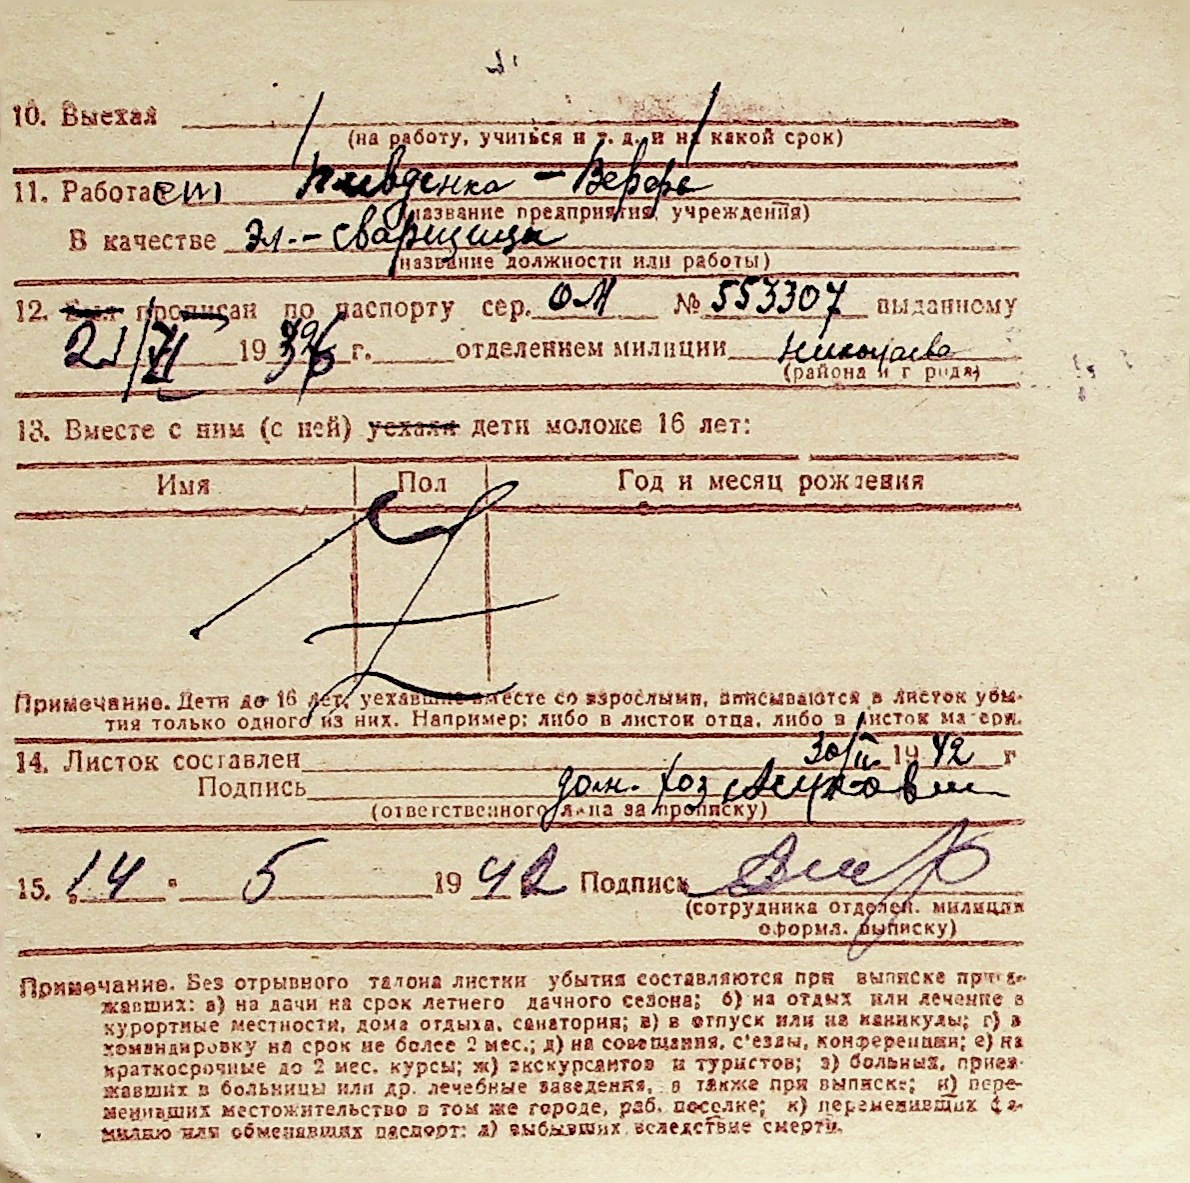 10. Выехал
(на работу, учиться и т. д. и на какой срок)
11. Работает
(название предприятия, учреждения)
В качестве эл.-сварщица
(название должности или работы)
12. Был прописан по паспорту сер. ОМ № 553307 выданному
21/VI 19 г. отделением милиции Николаева
(района и города)
13. Вместе с ним (с ней) уехали дети моложе 16 лет:
Имя Пол Год и месяц рождения
Примечание. Дети до 16 лет, уехавшие вместе со взрослыми, вписываются в листок убы-
тия только одного из них. Например: либо в листок отца, либо в листок матери.
14. Листок составлен 30/II 19 42 г
Подпись
(ответственного лица за прописку)
15. 14 . 5 19 42 Подпись
(сотрудника отделен. милиции
оформл. выписку)
Примечание. Без отрывного талона листки убытия составляются при выписке приез-
жавших: а) на дачи на срок летнего дачного сезона; б) на отдых или лечение в
курортные местности, дома отдыха, санатория; в) в отпуск или на каникулы; г) в
командировку на срок не более 2 мес.; д) на совещания, с'езды, конференции; е) на
краткосрочные до 2 мес. курсы; ж) экскурсантов и туристов; з) больных, приез-
жавших в больницы или др. лечебные заведения, а также при выписке; и) пере-
менивших местожительство в том же городе, раб. поселке; к) переменивших фа-
милию или обменявших паспорт; л) выбывших вследствие смерти.